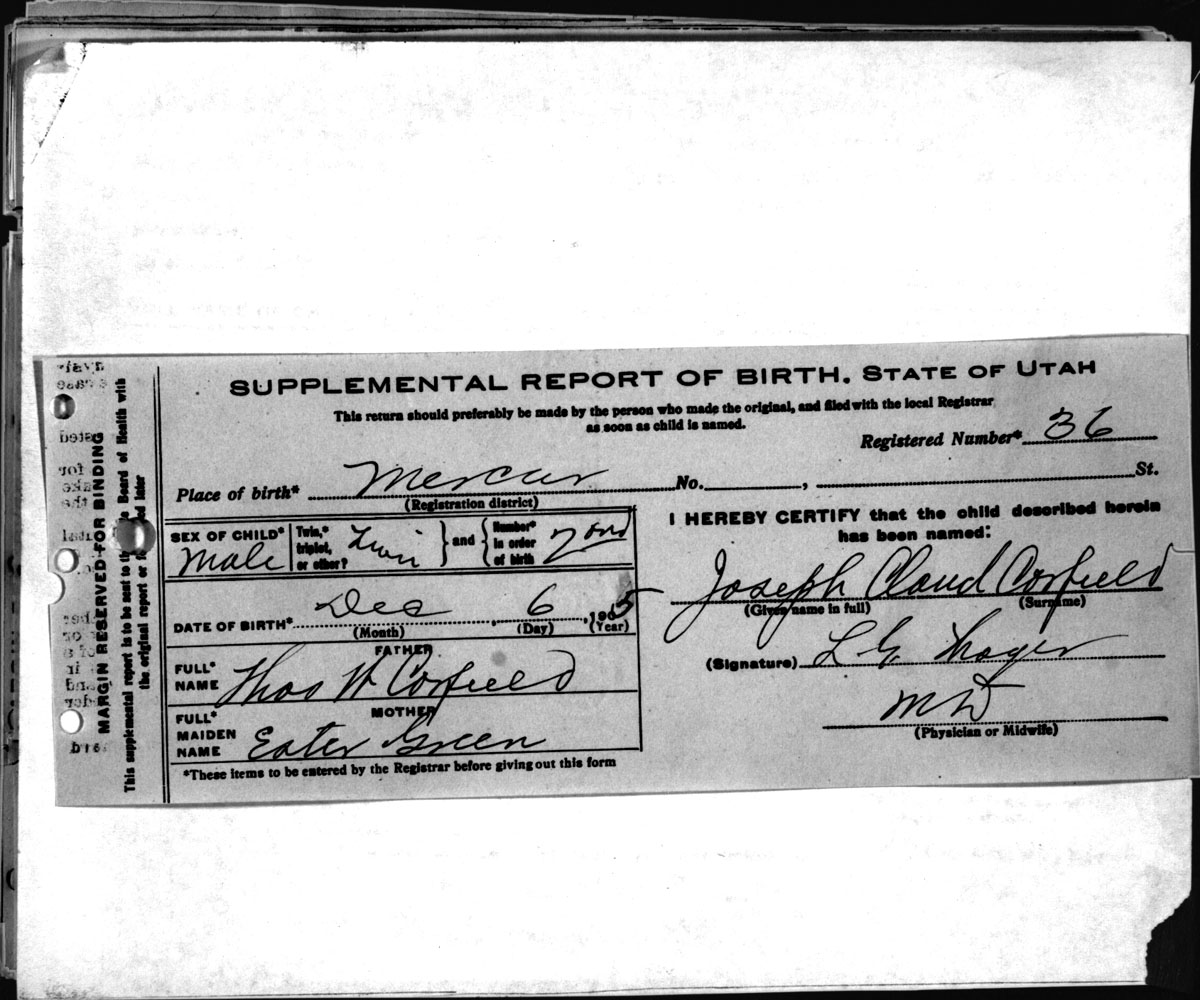 SUPPLEMENTAL REPORT OF BIRTH. STATE OF UTAH
This return should preferably be made by the person who made the original, and filed with the local Registrar
as soon as child is named.
Registered Number* 36
Place of birth* Mercur No. , St.
(Registration district)
SEX OF CHILD* Male
Twin,* triplet, or other? Twin
and
Number* in order of birth 2nd
DATE OF BIRTH* Dec , 6 , 1905
(Month) (Day) (Year)
FATHER
FULL* NAME Thos H Corfield
MOTHER
FULL* MAIDEN NAME Ester Green
*These items to be entered by the Registrar before giving out this form
I HEREBY CERTIFY that the child described herein
has been named:
Joseph Claud Corfield
(Given name in full) (Surname)
(Signature) L G
MD
(Physician or Midwife)
MARGIN RESERVED FOR BINDING
This supplemental report is to be sent to the Board of Health with
the original report or later